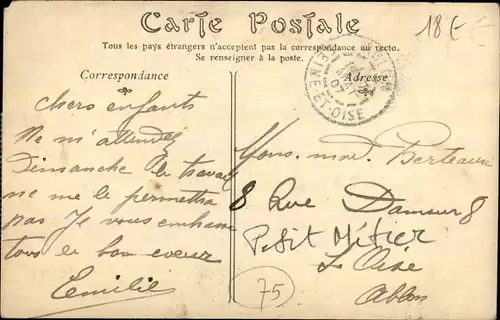 Carte Postale
18 €
Tous les pays étrangers n'acceptent pas la correspondance au recto.
Se renseigner à la poste.
Correspondance
Adresse
Chers enfants
Ne m'attendez
Dimanche le travail
ne me le permettra
pas Je vous embrasse
tous de bon cœur
Emilie
ABLON
07
SEINE-ET-OISE
Mons. mad. Berteaux
8 Rue Damour 8
Petit Métier
S Oise
Ablon
75